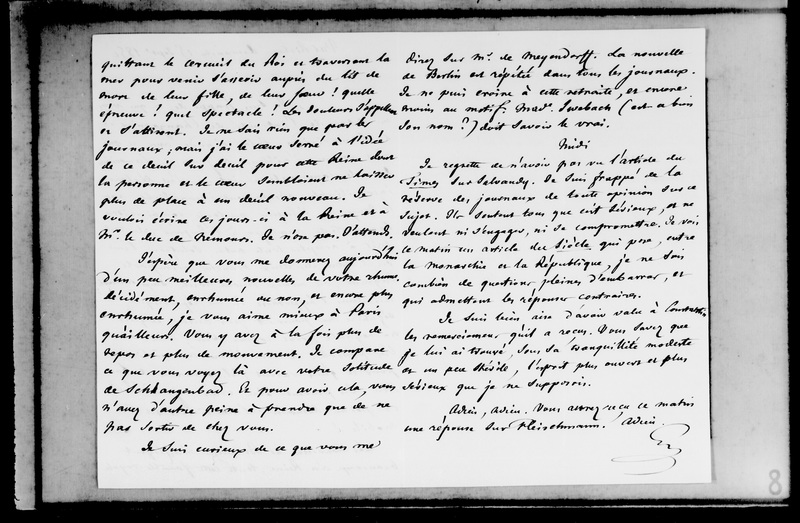 quittant le cercueil du Roi et traversant la
mer pour venir s'asseoir auprès du lit de
mort de leur fille, de leur sœur ! quelle
épreuve ! quel spectacle ! Les douleurs s'appellent
et s'attirent. Je ne sais rien que par les
journaux ; mais j'ai le cœur serré à l'idée
de ce deuil sur deuil pour cette Reine dont
la personne et le cœur semblaient ne laisser
plus de place à un deuil nouveau. Je
voulois écrire ces jours-ci à la Reine et à
Mr. le duc de Nemours. Je n'ose pas. J'attends.
J'espère que vous me donnerez aujourd'hui
d'un peu meilleures nouvelles de votre rhume.
Décidément, enrhumée ou non, et encore plus
enrhumée, je vous aime mieux à Paris
qu'ailleurs. Vous y avez à la fois plus de
repos et plus de mouvement. Je compare
ce que vous voyez là avec votre solitude
de Schlangenbad. Et pour avoir cela, vous
n'avez d'autre peine à prendre que de ne
pas sortir de chez vous.
Je suis curieux de ce que vous me
direz sur Mr. de Meyendorff. La nouvelle
de Berlin est répétée dans tous les journaux.
Je ne puis croire à cette retraite, et encore
moins au motif. Made. (est-ce bien
son nom ?) doit savoir le vrai.
Midi
Je regrette de n'avoir pas vu l'article du
Times sur Salvandy. Je suis frappé de la
réserve des journaux de toute opinion sur ce
sujet. Ils sentent tous que c'est sérieux, et ne
veulent ni s'engager, ni se compromettre. Je vois
ce matin un article du Siècle qui pose, entre
la Monarchie et la République, je ne sais
combien de questions pleines d'embarras, et
qui admettent les réponses contraires.
Je suis bien aise d'avoir valu à Constantin
les remerciements qu'il a reçus. Vous savez que
je lui ai trouvé, sous sa tranquillité modeste
et un peu , l'esprit plus ouvert et plus
sérieux que je ne supposois.
Adieu, adieu. Vous aurez reçu ce matin
une réponse sur Fleischmann. Adieu
8